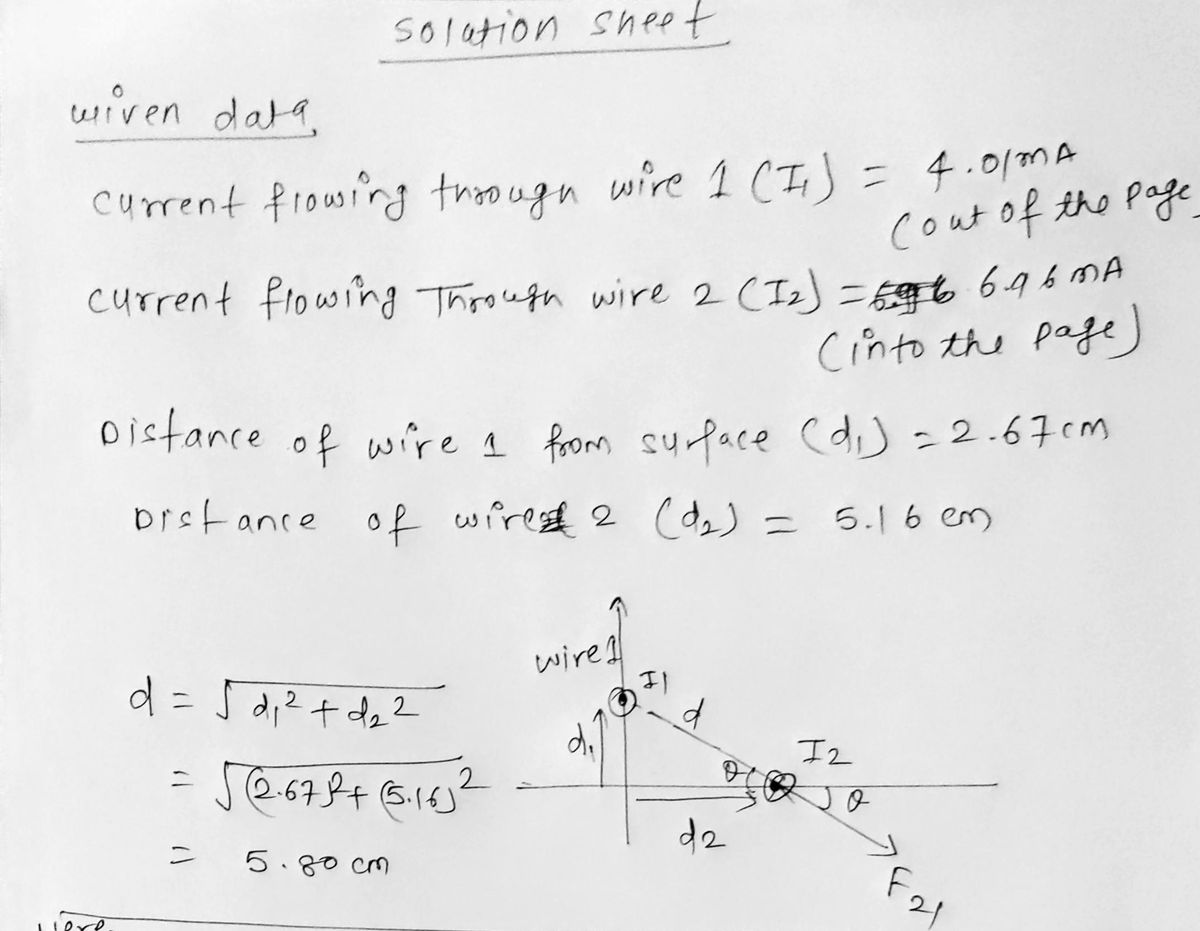 solution sheet
wiven data,
current flowing through wire 1 (I₁) = 4.01mA
(out of the page
current flowing Through wire 2 (I₂) = 6.96 mA
(into the page)
Distance of wire 1 from surface (d₁) = 2.67cm
Distance of wire 2 (d₂) = 5.16 cm
wire 1
I1
d = √d₁² + d₂²
d
d₁
I2
= √(2.67)² + (5.16)²
θ
θ
d2
= 5.80 cm
F₂₁